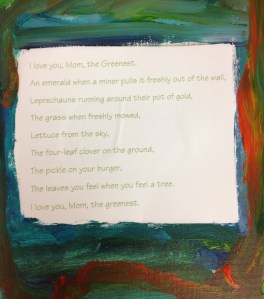 I love you, Mom, the Greenest.
An emerald when a miner pulls it freshly out of the wall,
Leprechauns running around their pot of gold,
The grass when freshly mowed,
Lettuce from the sky,
The four-leaf clover on the ground,
The pickle on your burger,
The leaves you feel when you feel a tree.
I love you, Mom, the greenest.